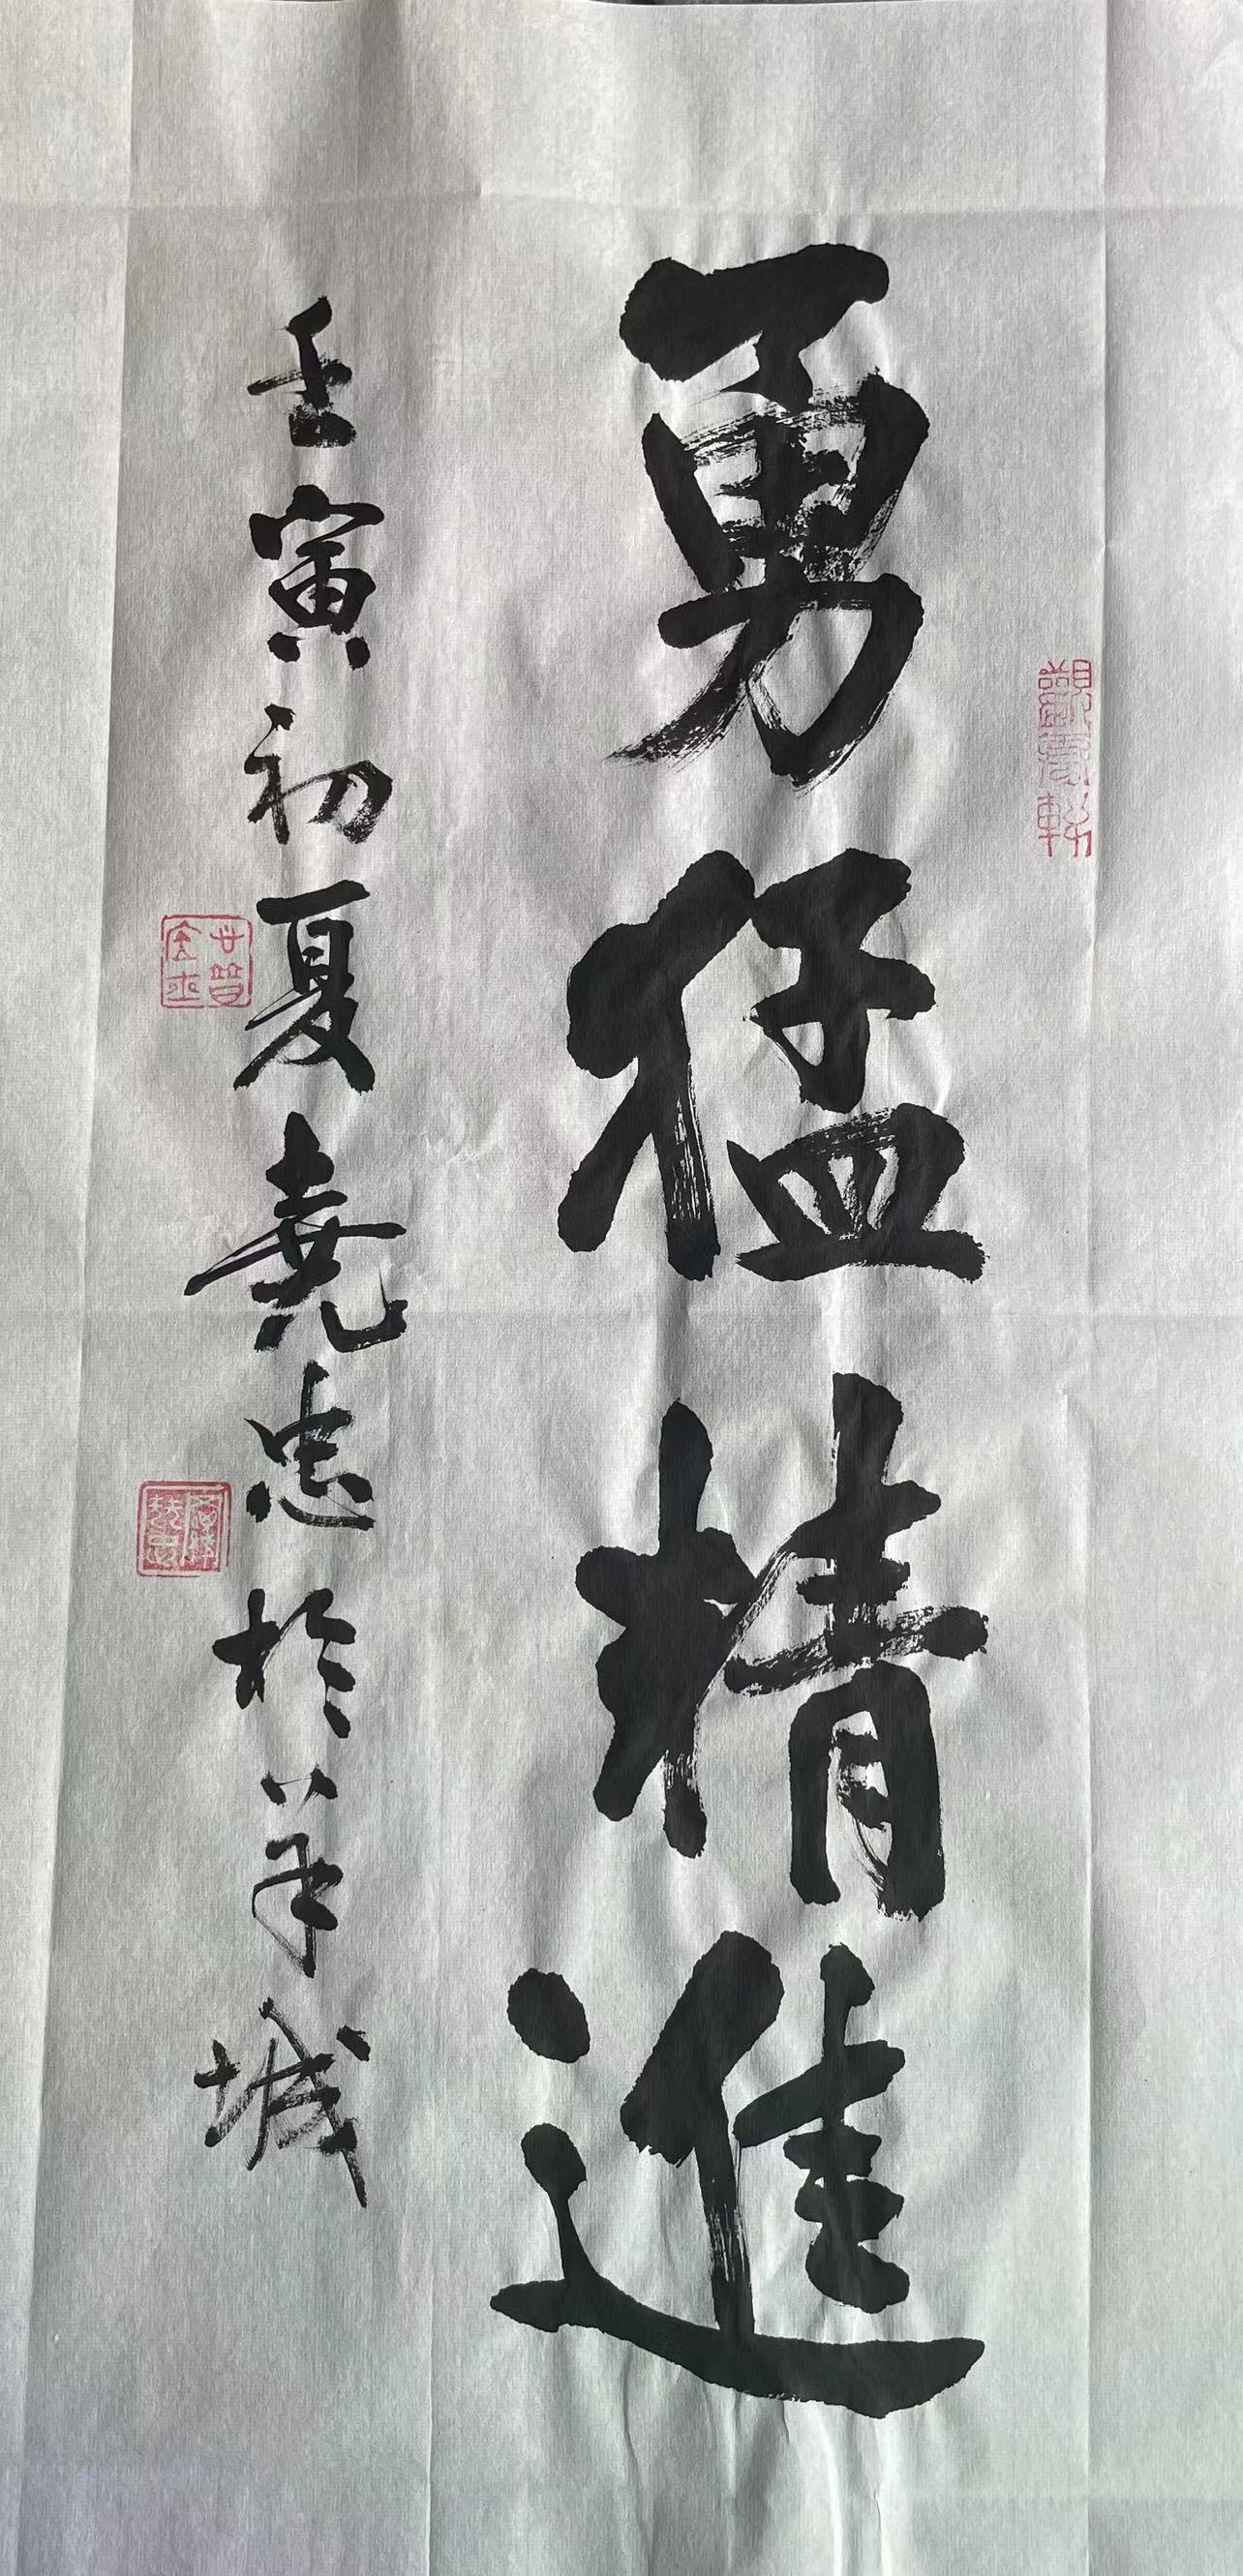 勇猛精進
壬寅初夏堯忠於羊城